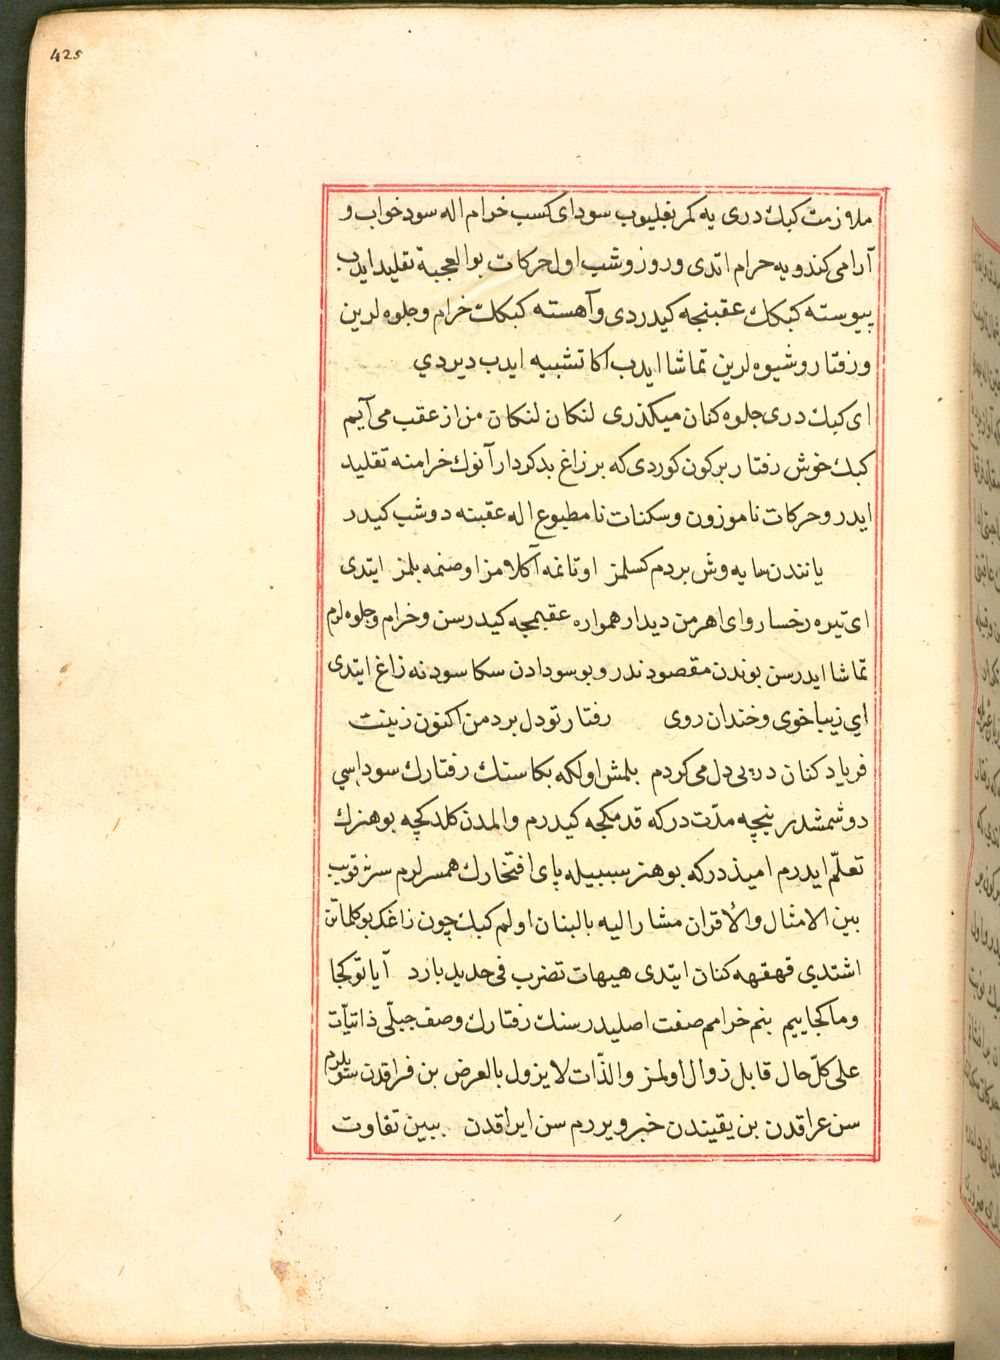 425
ملازمت كبك دری یه كمر بغلیوب سودای كسب خرام اله سود خواب و
آرامی كندویه حرام اتدی وروز وشب اول حركات بوالعجبه تقلید ایدب
پیوسته كبكك عقبنجه كیدردی وآهسته كبكك خرام وجلوه لرین
ورفتار وشیوه لرین تماشا ایدب اكا تشبیه ایدب دیردي
ای كبك دری جلوه كنان میكذری لنكان لنكان من از عقب می آیم
كبك خوش رفتار بركون كوردی كه بر زاغ بدكردار آنوك خرامنه تقلید
ایدر وحركات ناموزون وسكنات نامطبوع اله عقبنه دوشب كیدر
یانندن سایه وش بردم كسلمز اوتانمه آكلامز اوصنمه بلمز ایتدی
ای تیره رخسار وای اهرمن دیدار همواره عقبمجه كیدرسن وخرام وجلوه لرم
تماشا ایدرسن بوندن مقصود ندر وبو سودادن سكا سود نه زاغ ایتدی
اي زیباخوی وخندان روی رفتار تو دل برد من اكنون زپیت
فریاد كنان در پی دل می كردم بلمش اولكه بكا سنك رفتارك سوداسي
دوشمشدر نیچه مدّت دركه قدمكجه كیدرم والمدن كلدكچه بو هنرك
تعلّم ایدرم امیذدركه بو هنر سببیله پای افتخارك همسرلرم سرنه قویب
بین الامثال والأقران مشار الیه بالبنان اولم كبك چون زاغك بو كلماتن
اشتدي قهقهه كنان ایتدی هیهات تضرب فی حدید بارد آیا تو كجا
وما كجاییم بنم خرامم صفت اصلیدر سنك رفتارك وصف جبلّی ذاتیّات
علی كلّ حال قابل زوال اولمز والذّات لا یزول بالعرض بن فراقدن سویلرم
سن عراقدن بن یقیندن خبر ویررم سن ایراقدن ببین تفاوت